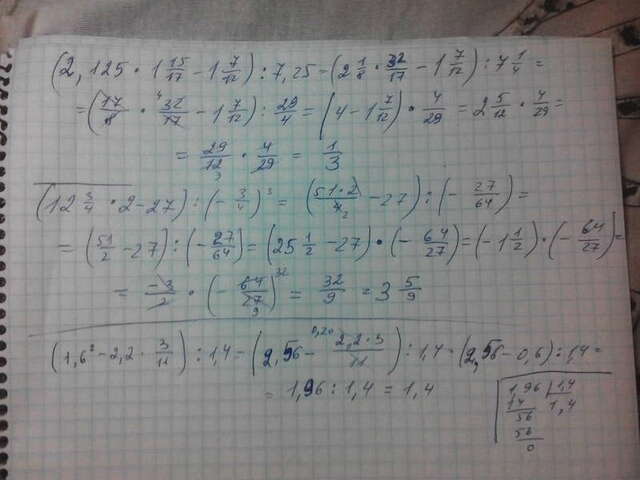 (2,125 · 1 15/17 - 1 7/12) : 7,25 = (2 1/8 · 32/17 - 1 7/12) : 7 1/4 =
= (17/8 · 32/17 - 1 7/12) : 29/4 = (4 - 1 7/12) · 4/29 = 2 5/12 · 4/29 =
= 29/12 · 4/29 = 1/3
(12 3/4 · 2 - 27) : (- 3/4)³ = (51·2/4 - 27) : (- 27/64) =
= (51/2 - 27) : (- 27/64) = (25 1/2 - 27) · (- 64/27) = (-1 1/2) · (- 64/27) =
= -3/2 · (- 64/27) = 32/9 = 3 5/9
(1,6² - 2,2 · 3/11) : 1,4 = (2,56 - 2,2·3/11) : 1,4 = (2,56 - 0,6) : 1,4 =
= 1,96 : 1,4 = 1,4
1,96 | 1,4
14 1,4
56
56
0